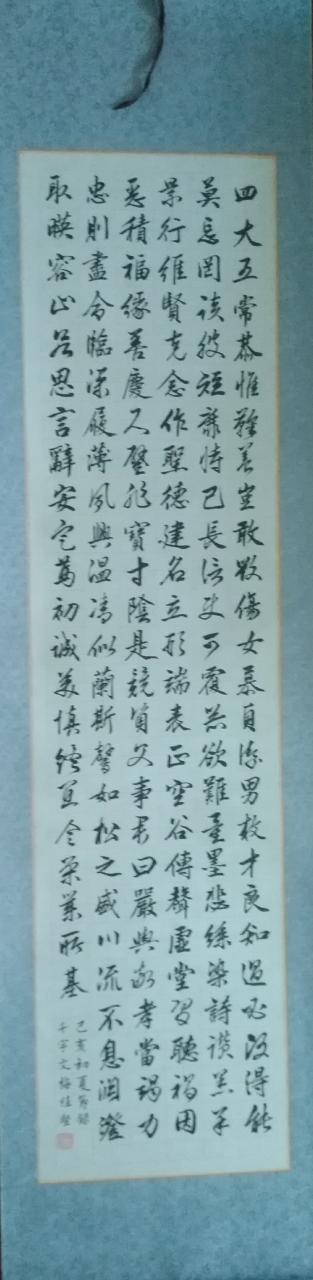 四大五常恭惟鞠養豈敢毀傷女慕貞潔男效才良知過必改得能
莫忘罔談彼短靡恃己長信使可覆器欲難量墨悲絲染詩讚羔羊
景行維賢克念作聖德建名立形端表正空谷傳聲虛堂習聽禍因
惡積福緣善慶尺璧非寶寸陰是競資父事君曰嚴與敬孝當竭力
忠則盡命臨深履薄夙興溫凊似蘭斯馨如松之盛川流不息淵澄
取暎容止若思言辭安定篤初誠美慎終宜令榮業所基
己亥初夏節錄
千字文